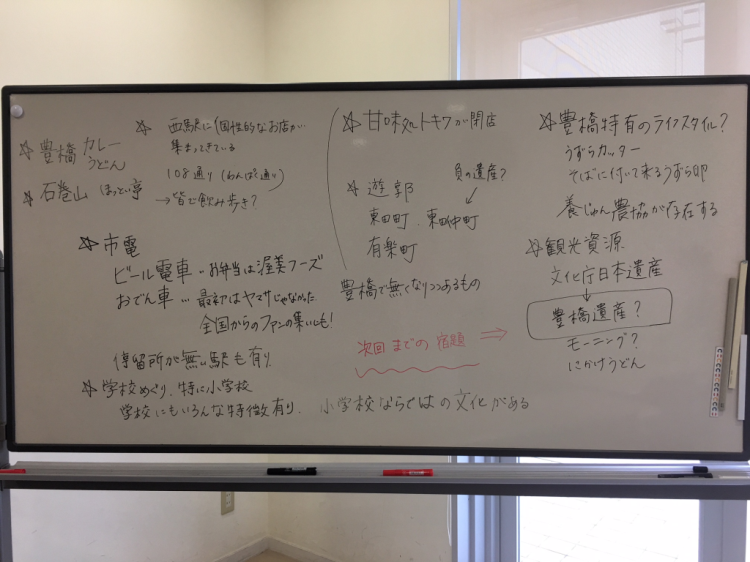 ☆ 豊橋 カレー
うどん
☆ 石巻山 ほっとい亭
☆ 西駅に個性的なお店が、
集まってきている
108通り(わんぱく通り)
→皆で飲み歩き?
☆ 市電
ビール電車…お弁当は渥美フーズ
おでん車…最初はヤマサじゃなかった
全国からのファンの集いにも!
停留所が無い駅も有り
☆ 学校めぐり、特に小学校
学校にもいろんな特徴有り. 小学校ならではの文化がある
☆ 甘味処トキワが閉店
☆ 遊郭 負の遺産?
東田町、東田仲町
有楽町
豊橋で無くなりつつあるもの
次回までの宿題 ⇒
☆ 豊橋特有のライフスタイル?
うずらカッター
そばに付いて来るうずら卵
養じゅん農協が存在する
☆ 観光資源
文化庁日本遺産
↓
豊橋遺産?
モーニング?
にかけうどん